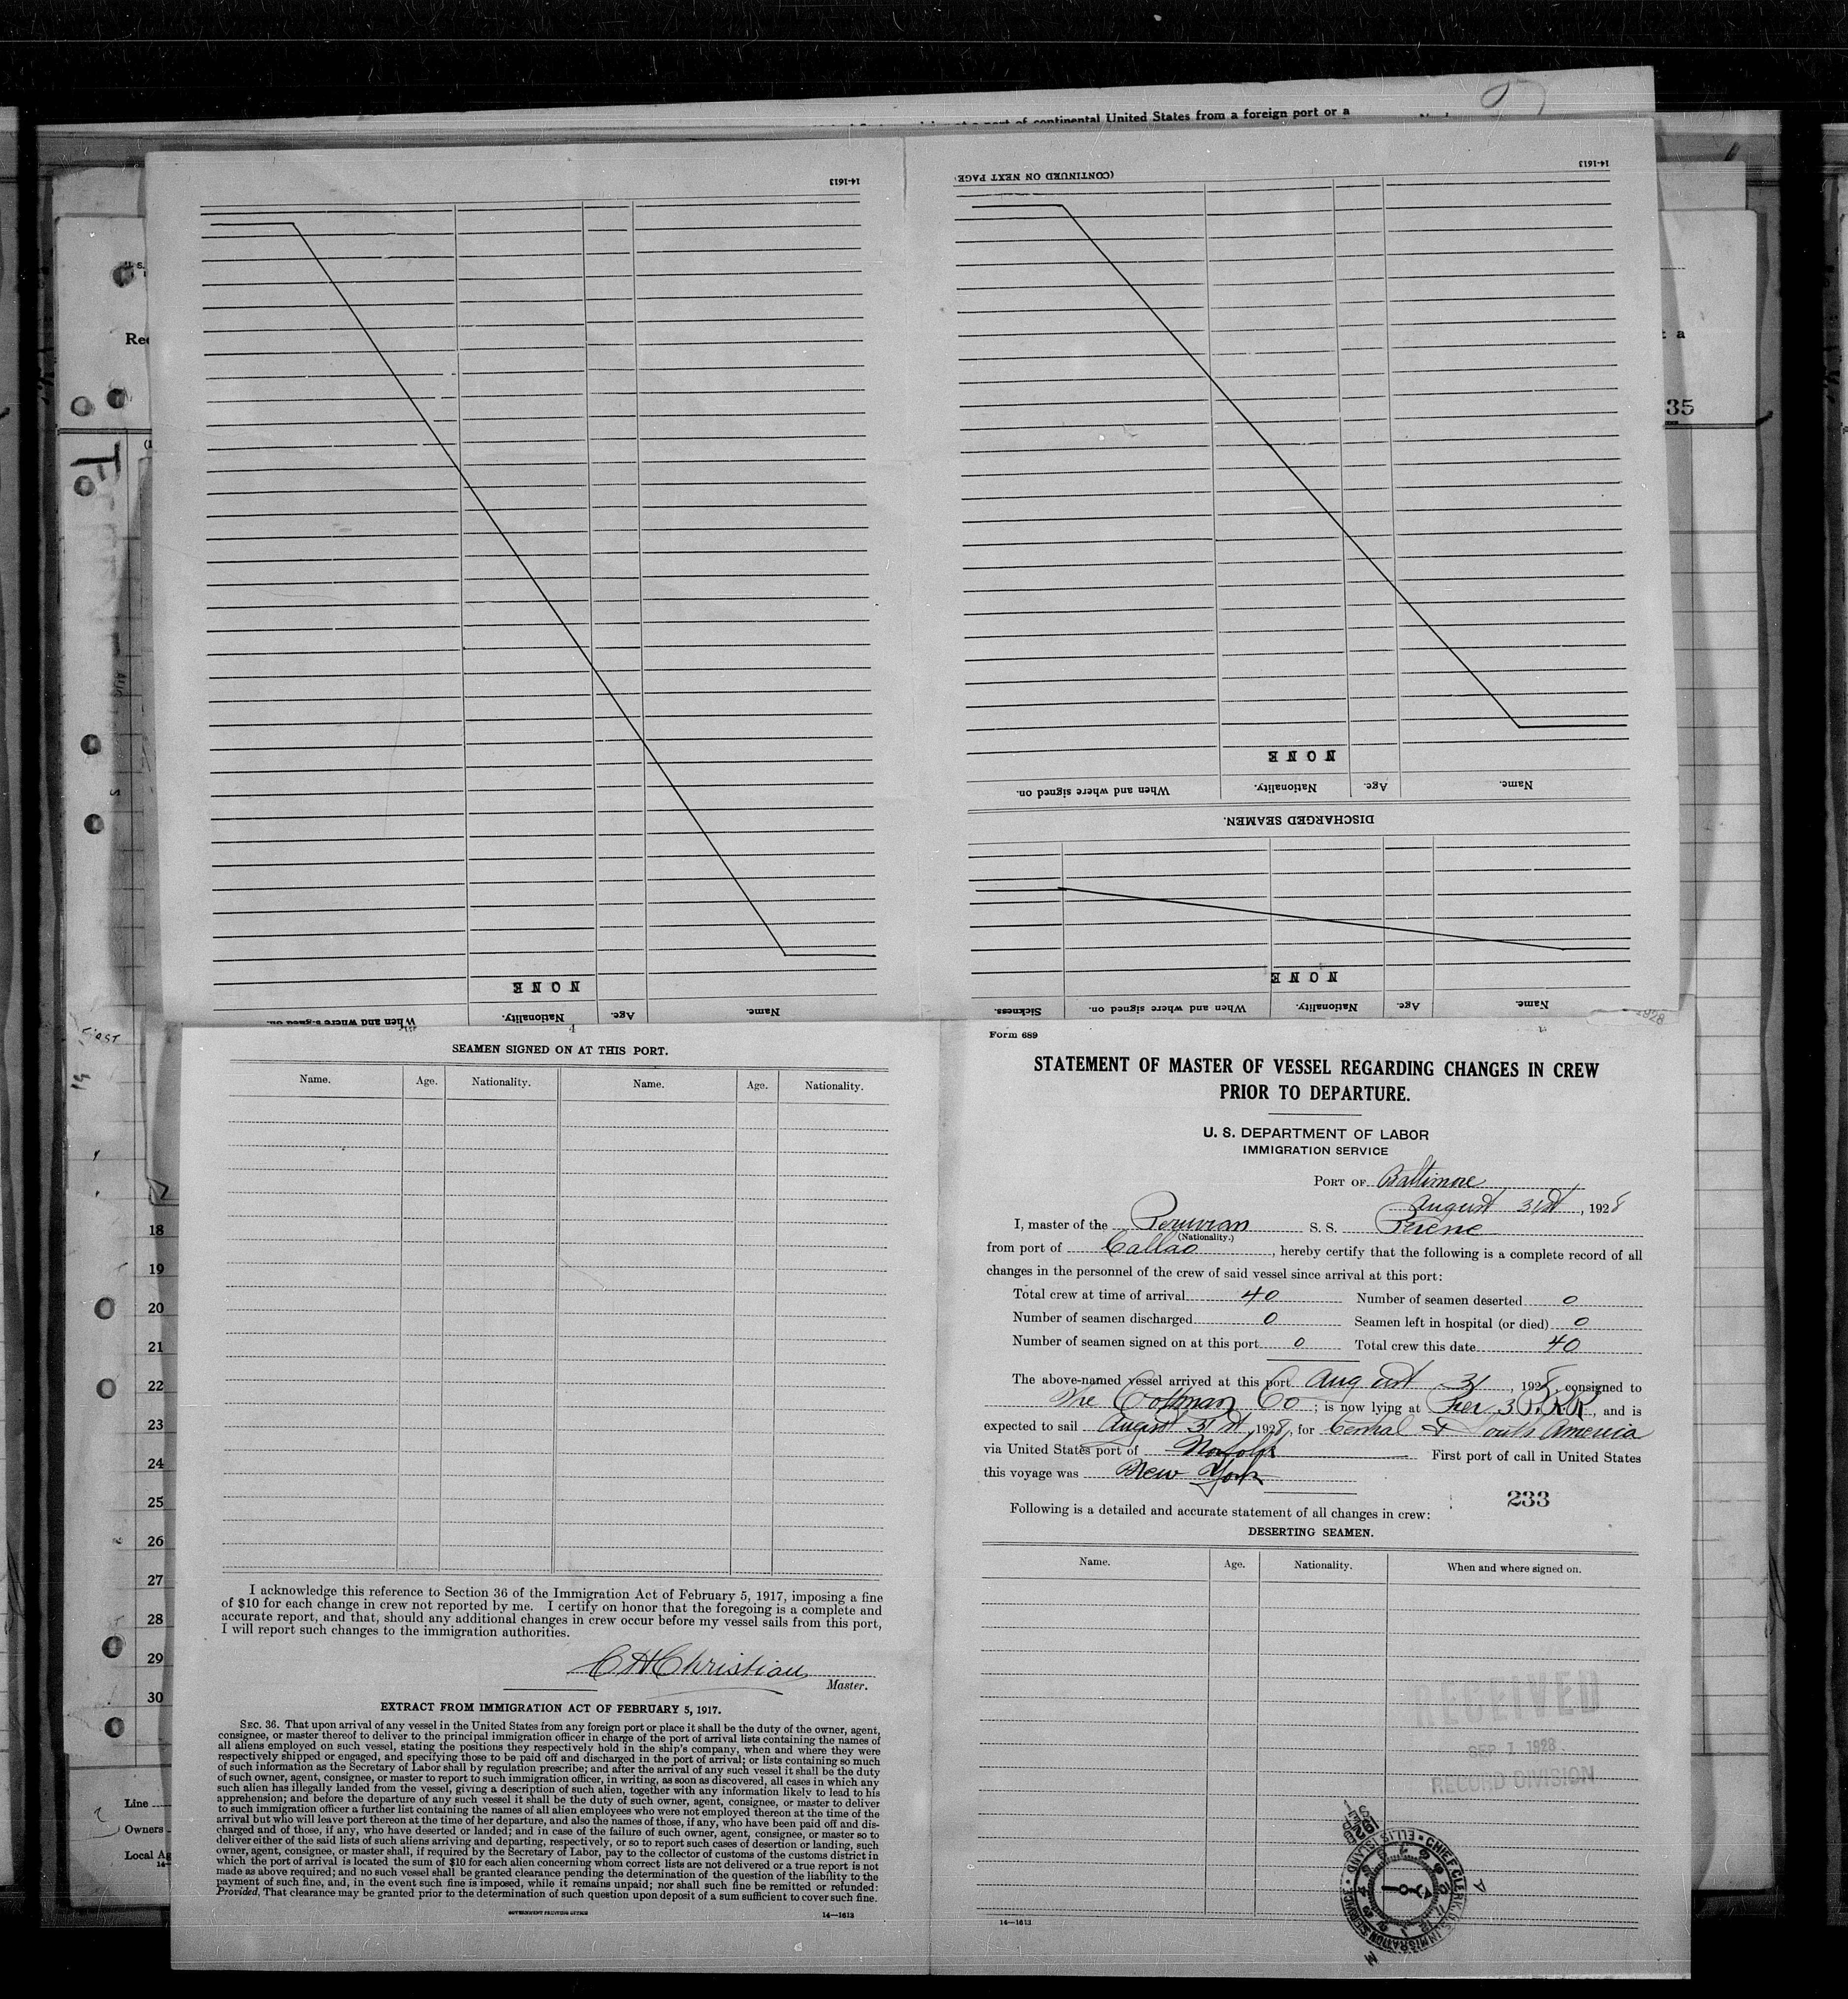 continental United States from a foreign port or a
14-1613
14-1613
(CONTINUED ON NEXT PAGE)
NONE
Name. Age. Nationality. When and where signed on.
DISCHARGED SEAMEN.
NONE
Name. Age. Nationality. When and where signed on. Sickness.
NONE
Name. Age. Nationality. When and where signed on.
35
To
18
19
20
21
22
23
24
25
26
27
28
29
30
Line
Owners
Local Ag
SEAMEN SIGNED ON AT THIS PORT.
Name. Age. Nationality. Name. Age. Nationality.
I acknowledge this reference to Section 36 of the Immigration Act of February 5, 1917, imposing a fine
of $10 for each change in crew not reported by me. I certify on honor that the foregoing is a complete and
accurate report, and that, should any additional changes in crew occur before my vessel sails from this port,
I will report such changes to the immigration authorities.
C H Christian
Master.
EXTRACT FROM IMMIGRATION ACT OF FEBRUARY 5, 1917.
SEC. 36. That upon arrival of any vessel in the United States from any foreign port or place it shall be the duty of the owner, agent,
consignee, or master thereof to deliver to the principal immigration officer in charge of the port of arrival lists containing the names of
all aliens employed on such vessel, stating the positions they respectively hold in the ship's company, when and where they were
respectively shipped or engaged, and specifying those to be paid off and discharged in the port of arrival; or lists containing so much
of such information as the Secretary of Labor shall by regulation prescribe; and after the arrival of any such vessel it shall be the duty
of such owner, agent, consignee, or master to report to such immigration officer, in writing, as soon as discovered, all cases in which any
such alien has illegally landed from the vessel, giving a description of such alien, together with any information likely to lead to his
apprehension; and before the departure of any such vessel it shall be the duty of such owner, agent, consignee, or master to deliver
to such immigration officer a further list containing the names of all alien employees who were not employed thereon at the time of the
arrival but who will leave port thereon at the time of her departure, and also the names of those, if any, who have been paid off and dis-
charged and of those, if any, who have deserted or landed; and in case of the failure of such owner, agent, consignee, or master so to
deliver either of the said lists of such aliens arriving and departing, respectively, or so to report such cases of desertion or landing, such
owner, agent, consignee, or master shall, if required by the Secretary of Labor, pay to the collector of customs of the customs district in
which the port of arrival is located the sum of $10 for each alien concerning whom correct lists are not delivered or a true report is not
made as above required; and no such vessel shall be granted clearance pending the determination of the question of the liability to the
payment of such fine, and, in the event such fine is imposed, while it remains unpaid; nor shall such fine be remitted or refunded:
Provided, That clearance may be granted prior to the determination of such question upon deposit of a sum sufficient to cover such fine.
GOVERNMENT PRINTING OFFICE 14—1613
Form 689
STATEMENT OF MASTER OF VESSEL REGARDING CHANGES IN CREW
PRIOR TO DEPARTURE.
U. S. DEPARTMENT OF LABOR
IMMIGRATION SERVICE
PORT OF Baltimore
August 31st, 1928
I, master of the Peruvian S. S. Perene
(Nationality.)
from port of Callao, hereby certify that the following is a complete record of all
changes in the personnel of the crew of said vessel since arrival at this port:
Total crew at time of arrival 40 Number of seamen deserted 0
Number of seamen discharged 0 Seamen left in hospital (or died) 0
Number of seamen signed on at this port 0 Total crew this date 40
The above-named vessel arrived at this port August 31, 1928, consigned to
The Cottman Co; is now lying at Pier 3 P.R.R., and is
expected to sail August 31st, 1928, for Central & South America
via United States port of Norfolk First port of call in United States
this voyage was New York
233
Following is a detailed and accurate statement of all changes in crew:
DESERTING SEAMEN.
Name. Age. Nationality. When and where signed on.
RECEIVED
SEP 1 1928
RECORD DIVISION
CHIEF CLERK U.S. IMMIGRATION SERVICE • ELLIS ISLAND •
14—1613